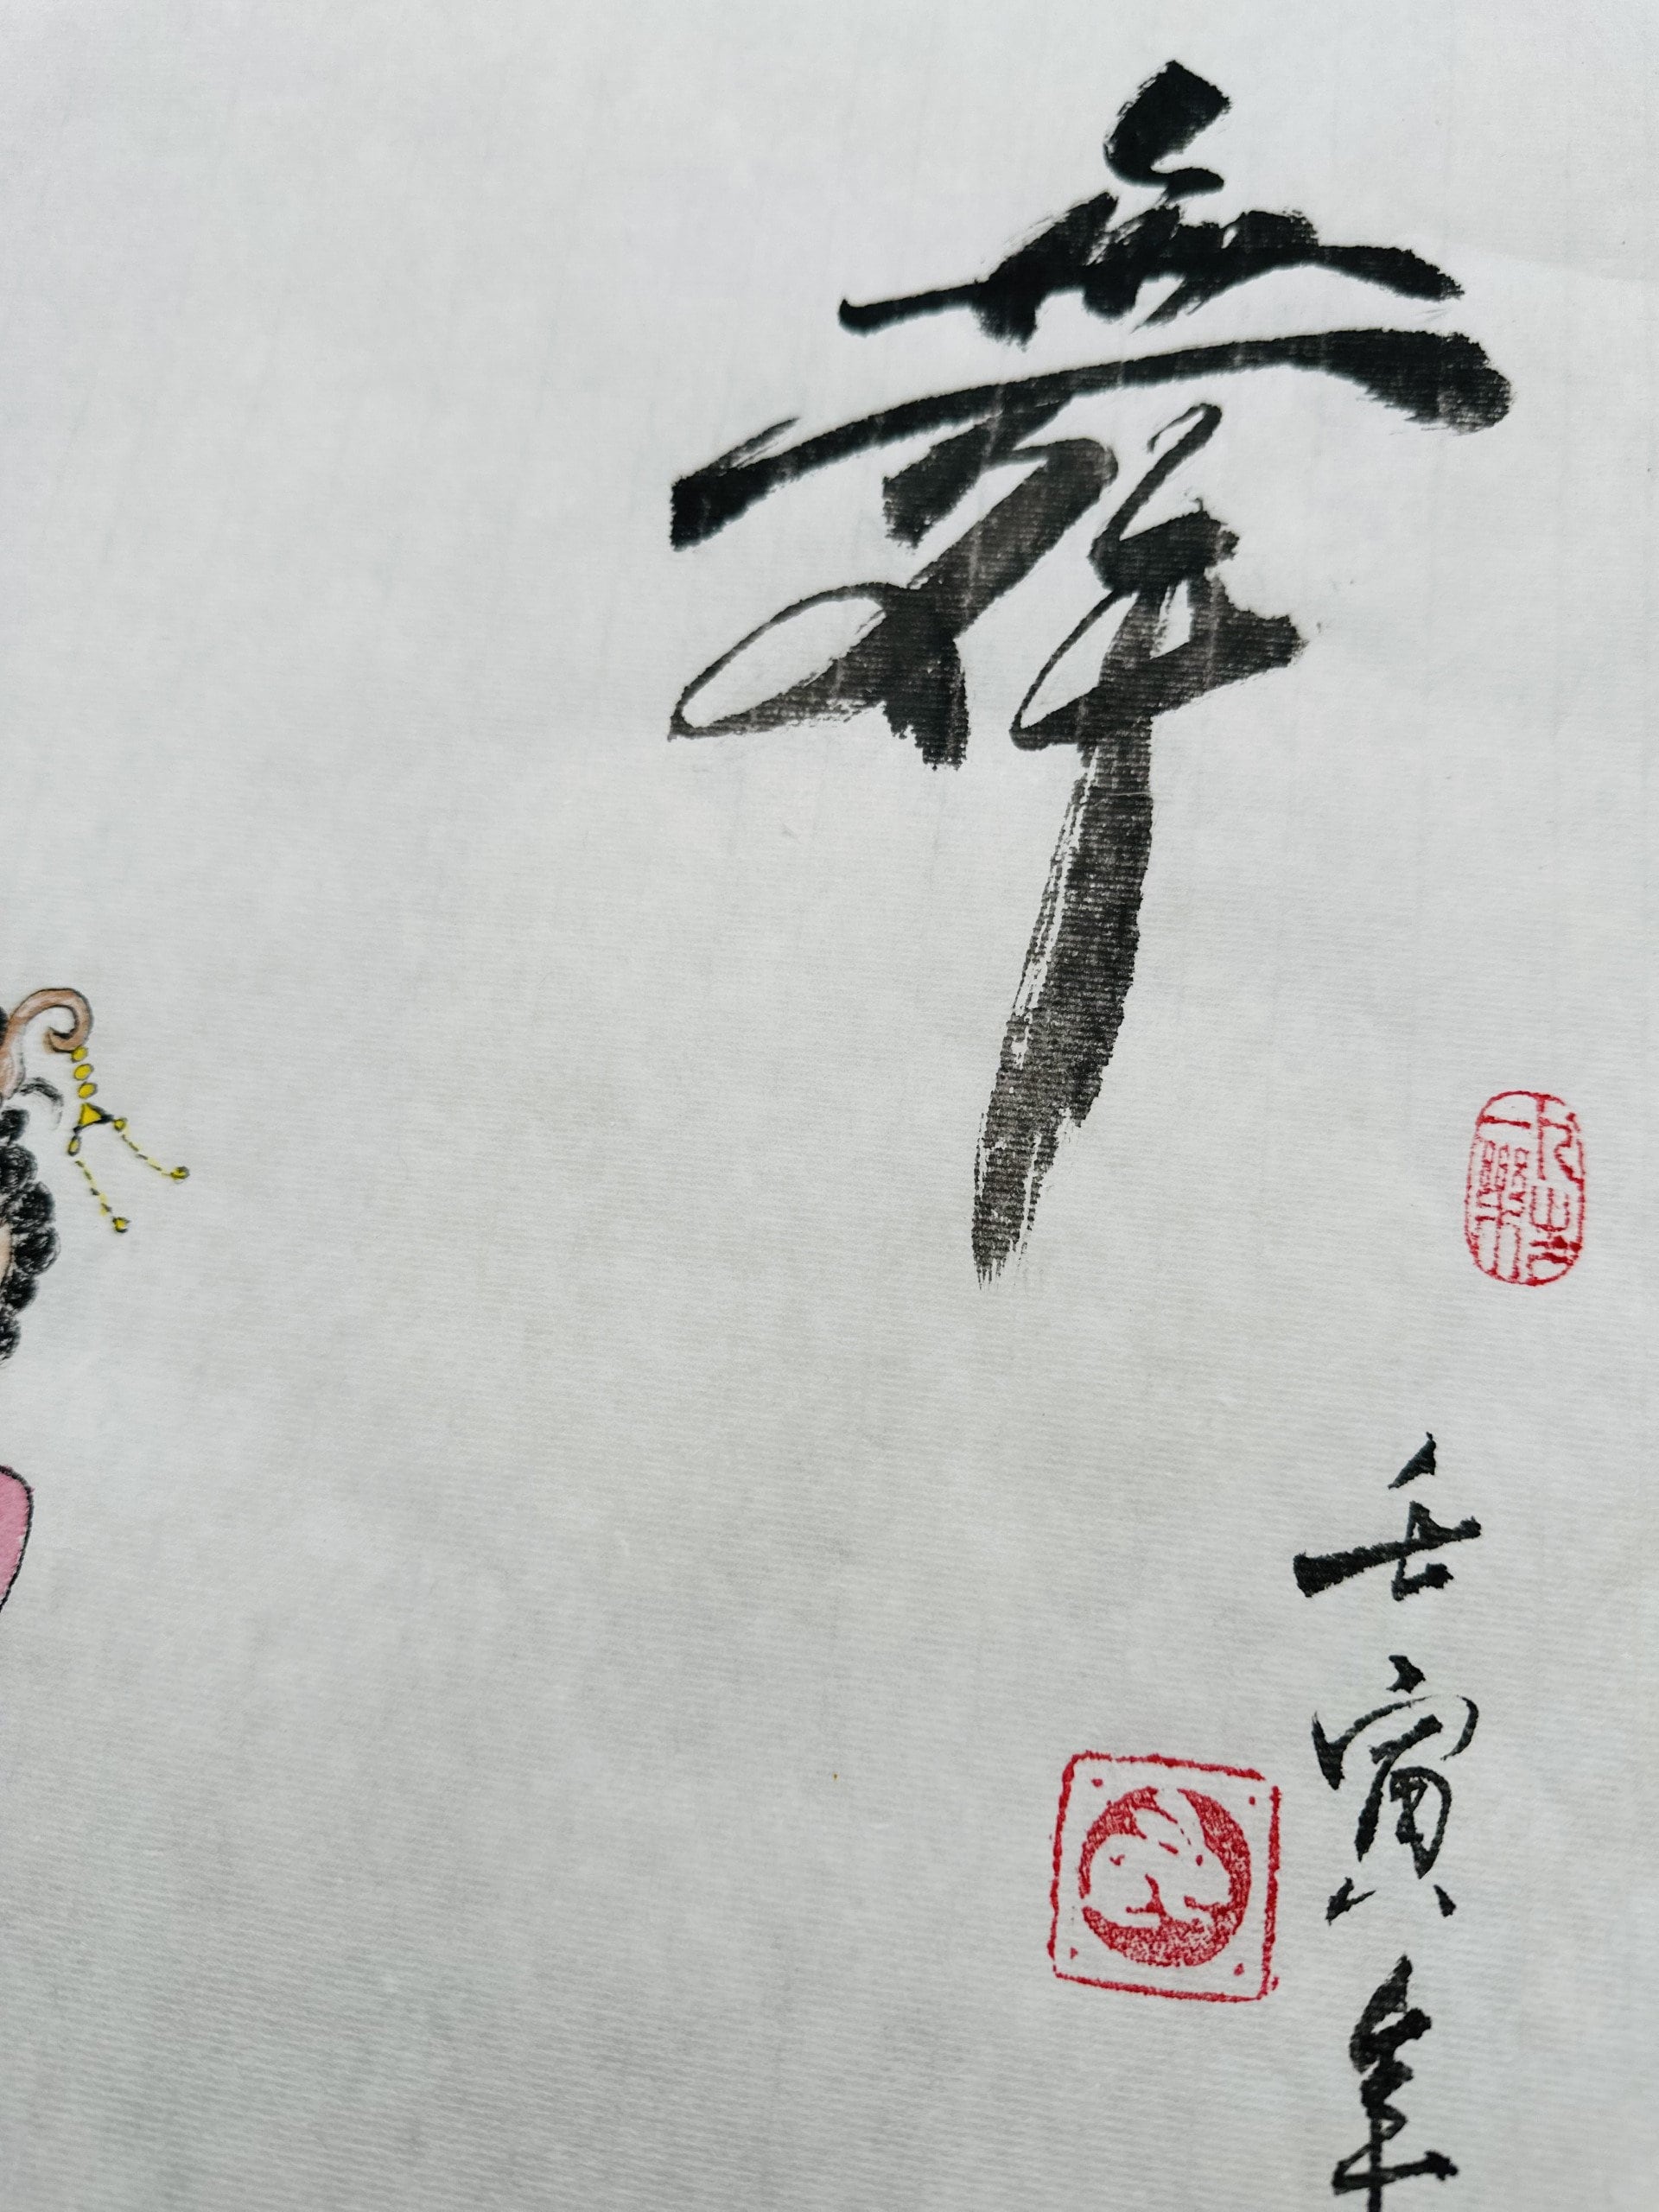 舞
壬寅年